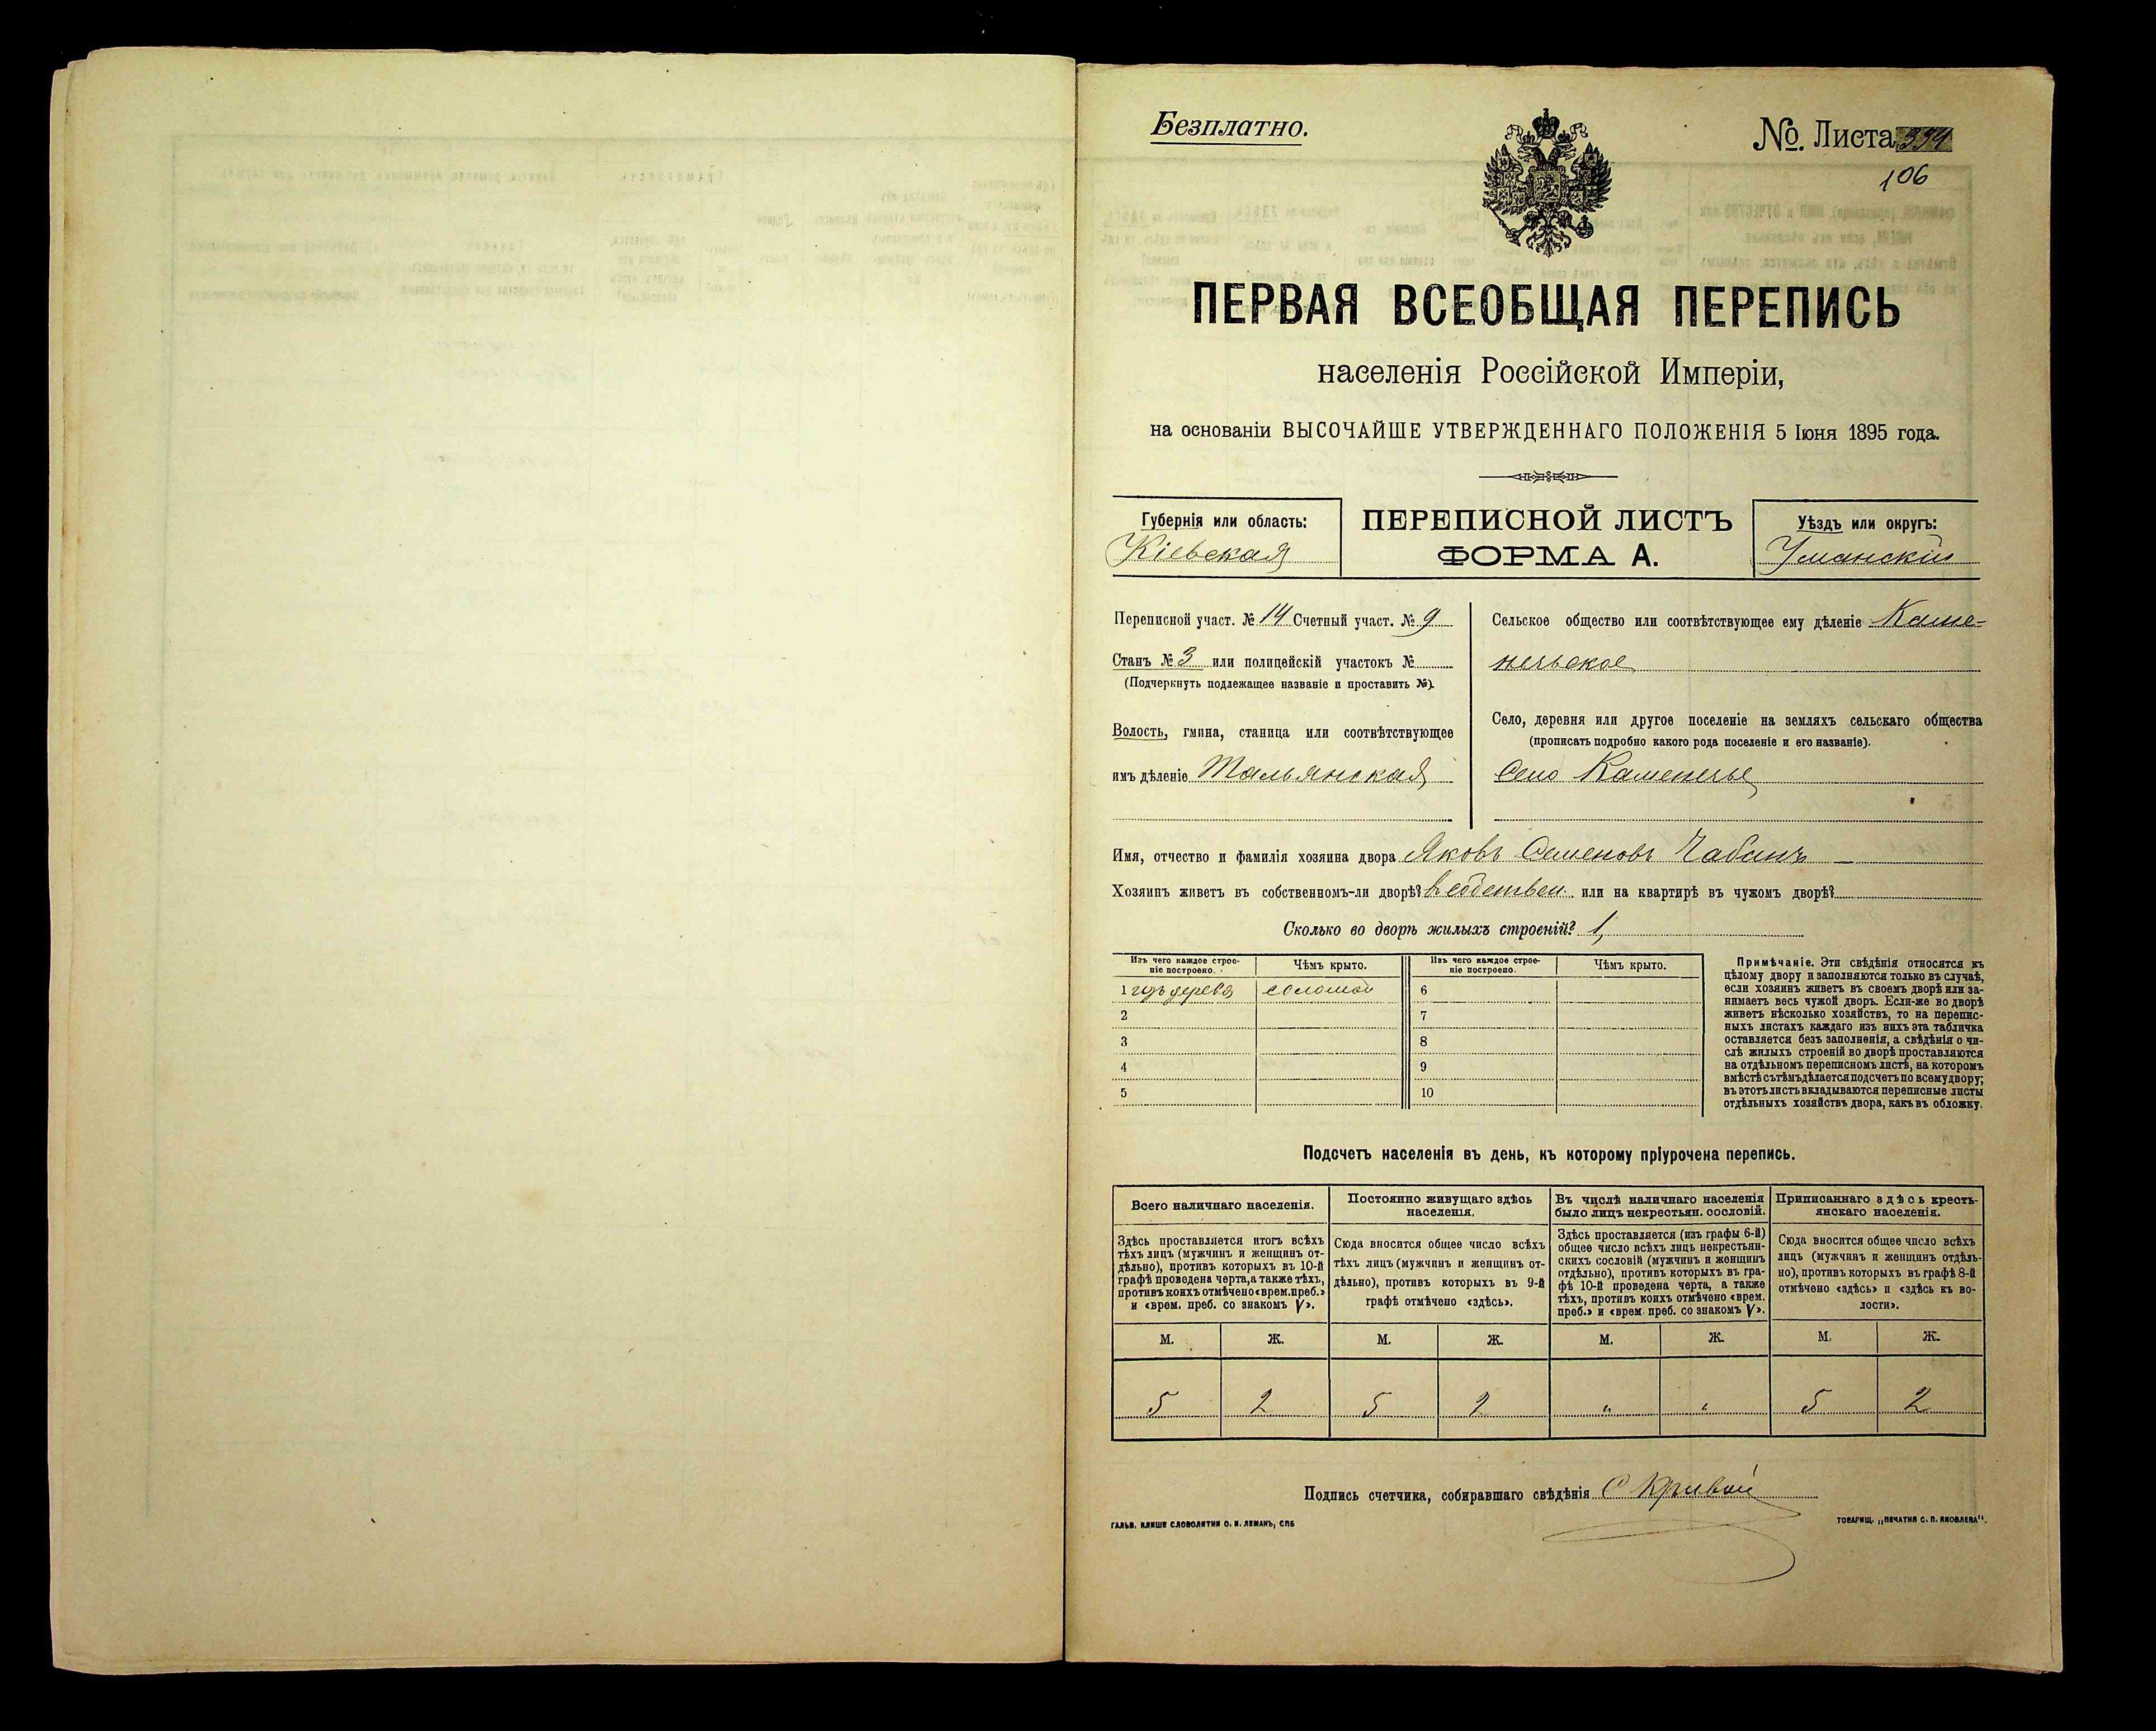 Безплатно.
№. Листа 394
106
ПЕРВАЯ ВСЕОБЩАЯ ПЕРЕПИСЬ
населенія Россійской Имперіи,
на основаніи ВЫСОЧАЙШЕ УТВЕРЖДЕННАГО ПОЛОЖЕНІЯ 5 Іюня 1895 года.
Губернія или область:
Кіевская
ПЕРЕПИСНОЙ ЛИСТЪ
ФОРМА А.
Уѣздъ или округъ:
Уманскій
Переписной участ. № 14 Счетный участ. № 9
Станъ № 3 или полицейскій участокъ №
(Подчеркнуть подлежащее названіе и проставить №).
Волость, гмина, станица или соотвѣтствующее
имъ дѣленіе Тальянская
Сельское общество или соотвѣтствующее ему дѣленіе Камe-
нечьское
Село, деревня или другое поселеніе на земляхъ сельскаго общества
(прописать подробно какого рода поселеніе и его названіе).
Село Каменечье
Имя, отчество и фамилія хозяина двора Яковъ Семеновъ Чабанъ
Хозяинъ живетъ въ собственномъ-ли дворѣ? в собствен. или на квартирѣ въ чужомъ дворѣ?
Сколько во дворѣ жилыхъ строеній? 1,
Изъ чего каждое строе-
ніе построено.
Чѣмъ крыто.
Изъ чего каждое строе-
ніе построено.
Чѣмъ крыто.
1 изъ дерева соломой 6
2 7
3 8
4 9
5 10
Примѣчаніе. Эти свѣдѣнія относятся къ
цѣлому двору и заполняются только въ случаѣ,
если хозяинъ живетъ въ своемъ дворѣ или за-
нимаетъ весь чужой дворъ. Если-же во дворѣ
живетъ нѣсколько хозяйствъ, то на перепис-
ныхъ листахъ каждаго изъ нихъ эта табличка
оставляется безъ заполненія, а свѣдѣнія о чи-
слѣ жилыхъ строеній во дворѣ проставляются
на отдѣльномъ переписномъ листѣ, на которомъ
вмѣстѣ съ тѣмъ дѣлается подсчетъ по всему двору;
въ этотъ листъ вкладываются переписные листы
отдѣльныхъ хозяйствъ двора, какъ въ обложку.
Подсчетъ населенія въ день, къ которому пріурочена перепись.
Всего наличнаго населенія.
Здѣсь проставляется итогъ всѣхъ
тѣхъ лицъ (мужчинъ и женщинъ от-
дѣльно), противъ которыхъ въ 10-й
графѣ проведена черта, а также тѣхъ,
противъ коихъ отмѣчено «врем. преб.»
и «врем. преб. со знакомъ V».
Постоянно живущаго здѣсь
населенія.
Сюда вносится общее число всѣхъ
тѣхъ лицъ (мужчинъ и женщинъ от-
дѣльно), противъ которыхъ въ 9-й
графѣ отмѣчено «здѣсь».
Въ числѣ наличнаго населенія
было лицъ некрестьян. сословій.
Здѣсь проставляется (изъ графы 6-й)
общее число всѣхъ лицъ некрестьян-
скихъ сословій (мужчинъ и женщинъ
отдѣльно), противъ которыхъ въ гра-
фѣ 10-й проведена черта, а также
тѣхъ, противъ коихъ отмѣчено «врем.
преб.» и «врем. преб. со знакомъ V».
Приписаннаго здѣсь кресть-
янскаго населенія.
Сюда вносится общее число всѣхъ
лицъ (мужчинъ и женщинъ отдѣль-
но), противъ которыхъ въ графѣ 8-й
отмѣчено «здѣсь» и «здѣсь къ во-
лости».
М. Ж. М. Ж. М. Ж. М. Ж.
5 2 5 2 „ „ 5 2
Подпись счетчика, собиравшаго свѣдѣнія С Кривой
ГАЛЬВ. КЛИШЕ СЛОВОЛИТНИ О. И. ЛЕМАНЪ, СПБ
ТОВАРИЩ. „ПЕЧАТНЯ С. П. ЯКОВЛЕВА".